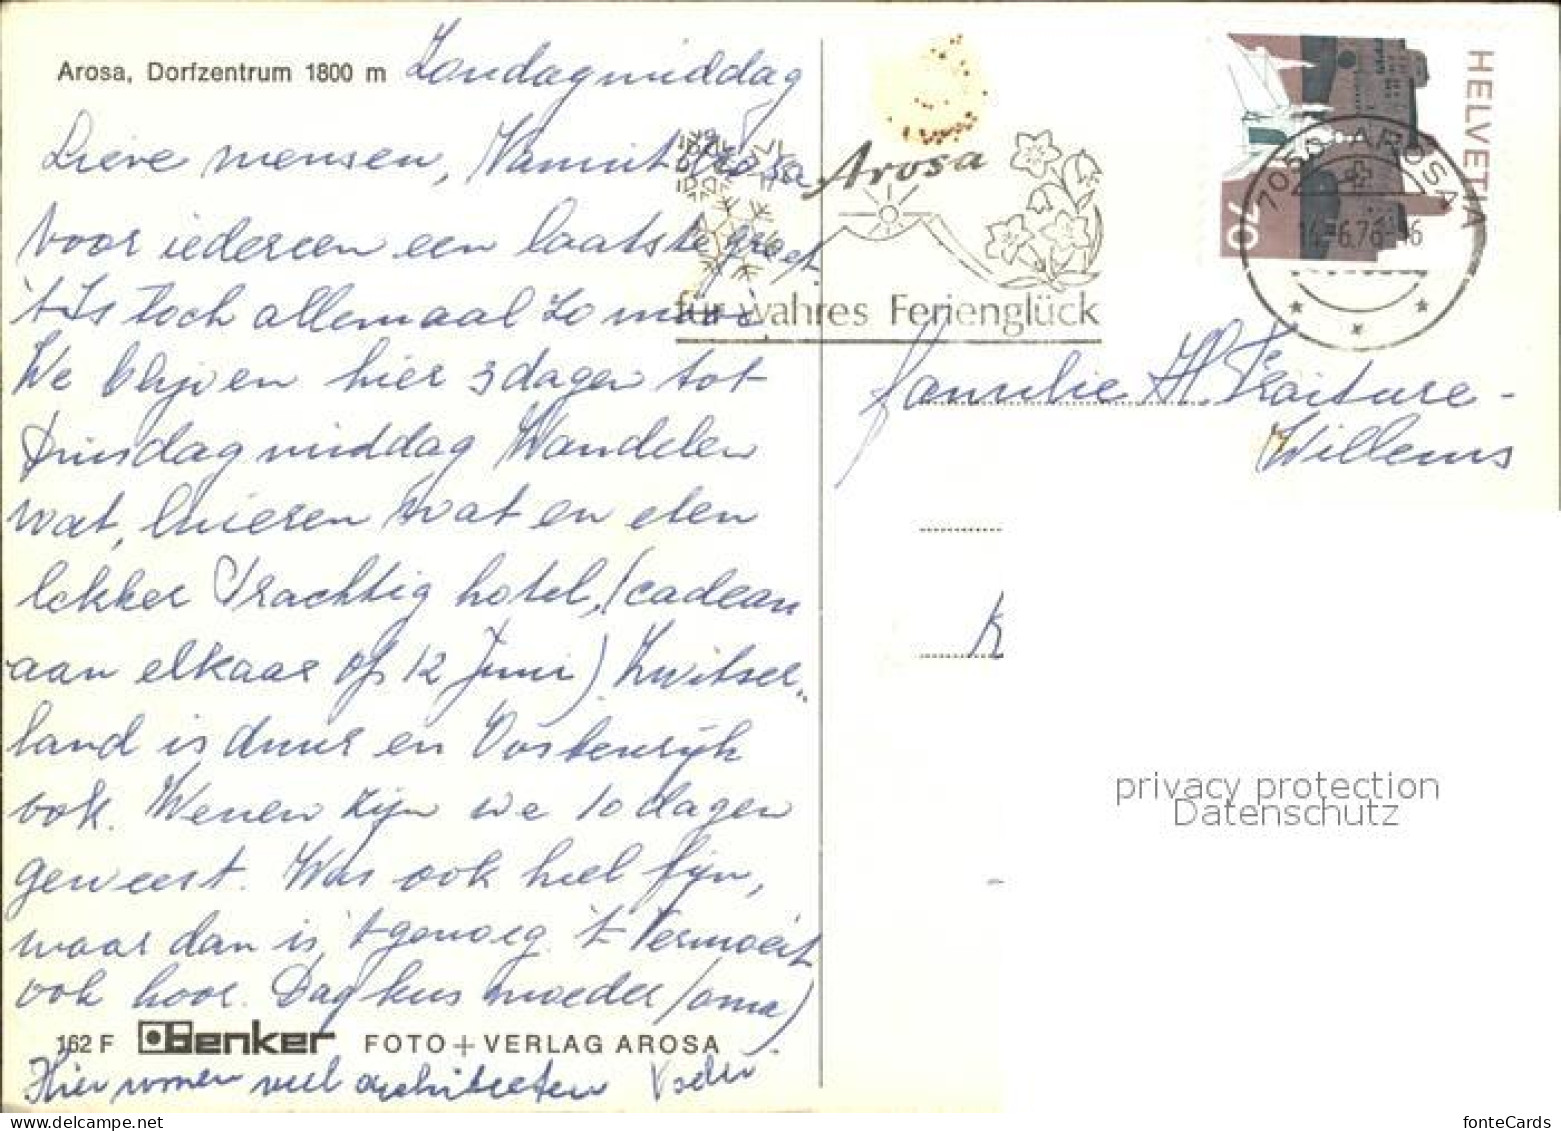 Arosa, Dorfzentrum 1800 m Zondagmiddag
Lieve mensen, Vanuit Arosa
voor iedereen een laatste groet.
't Is toch allemaal zo mooi
We blijven hier 3 dagen tot
Dinsdagmiddag Wandelen
wat, luieren wat en eten
lekker Prachtig hotel, (cadeau
aan elkaar op 12 Juni) Zwitser„
land is duur en Oostenrijk
ook. Wenen zijn we 10 dagen
geweest. Was ook heel fijn,
maar dan is 't genoeg. 't Vermoeit
ook hoor. Dag kus moeder/oma)
162 F Benker FOTO + VERLAG AROSA
Hier wonen veel architecten
Arosa
für wahres Ferienglück
HELVETIA
70
7050 AROSA
14.-6.76-16
Familie H.
Willems
K
privacy protection
Datenschutz
fonteCards